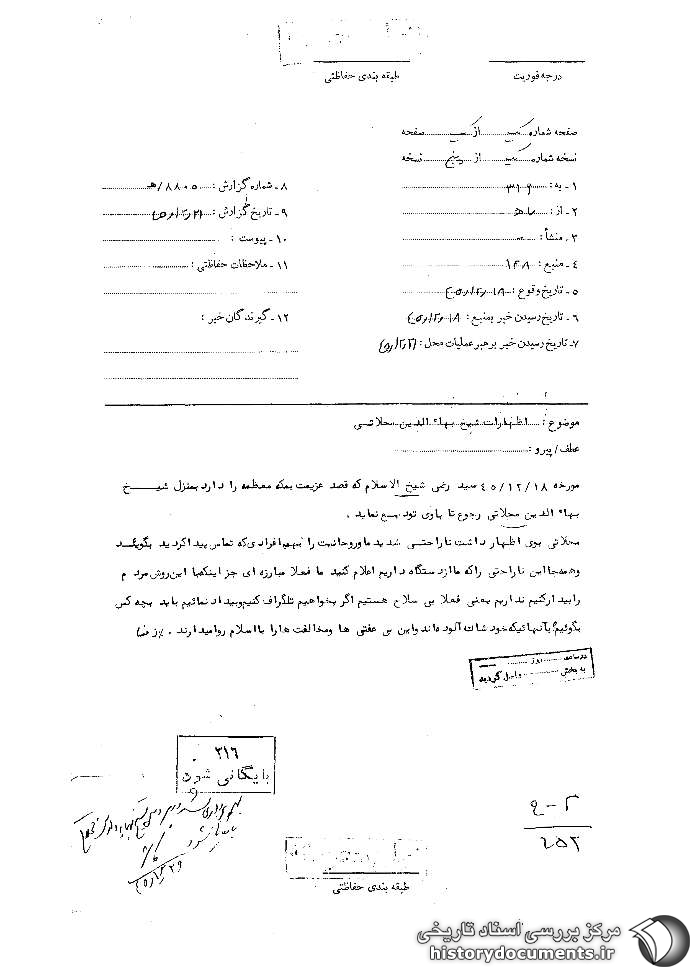 درجه فوریت
طبقه بندی حفاظتی
صفحه شماره یک از یک صفحه
نسخه شماره یک از پنج نسخه
۱ـ به : ۳۱۶
۲ـ از : ۷ ه‍
۳ـ منشأ :
۴ـ منبع : ۱۴۸
۵ـ تاریخ وقوع : ۴۵/۱۲/۱۸
۶ـ تاریخ رسیدن خبر بمنبع : ۴۵/۱۲/۱۸
۷ـ تاریخ رسیدن خبر برهبر عملیات محل : ۴۵/۱۲/۲۱
۸ـ شماره گزارش : ۸۸۰۵/ه‍
۹ـ تاریخ گزارش : ۴۵/۱۲/۲۱
۱۰ـ پیوست :
۱۱ـ ملاحظات حفاظتی :
۱۲ـ گیرندگان خبر :
موضوع : اظهارات شیخ بهاء الدین محلاتی
عطف / پیرو :
مورخه ۴۵/۱۲/۱۸ سید رضی شیخ الاسلام که قصد عزیمت بمکه معظمه را دارد بمنزل شیخ
بهاء الدین محلاتی رجوع تا باوی تودیع نماید .
محلاتی بوی اظهار داشت ناراحتی شدید ما و روحانیت را بهمه افرادی که تماس پیدا کردید بگوئید
و همه جا این ناراحتی را که ما از دستگاه داریم اعلام کنید ما فعلا مبارزه ای جز اینکه با این روش مردم
را بیدار کنیم نداریم یعنی فعلا بی سلاح هستیم اگر بخواهیم تلگراف کنیم و بیداد نمائیم باید بچه کس
بگوئیم بآنهائیکه خودشان آلوده اند و این بی عفتی ها و مخالفت ها را با اسلام روا میدارند .
در ساعت روز
به بخش واصل گردید
۳۱۶
بایگانی شود
۲ - ع
۲۵۲
طبقه بندی حفاظتی
مرکز بررسی اسناد تاریخی
historydocuments.ir